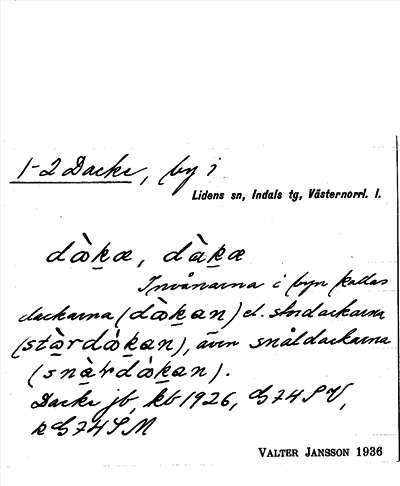 1-2 Dacke, by i
Lidens sn, Indals tg, Västernorrl. l.
dàk̠æ, dàk̠æ
Invånarna i byn kallas
dackarna (dàk̠an) el. stordackarna
(stòrdàk̠an), även snåldackarna
(snàldàk̠an).
Dacke jb, kb 1926, G74SV,
k G74SM
VALTER JANSSON 1936